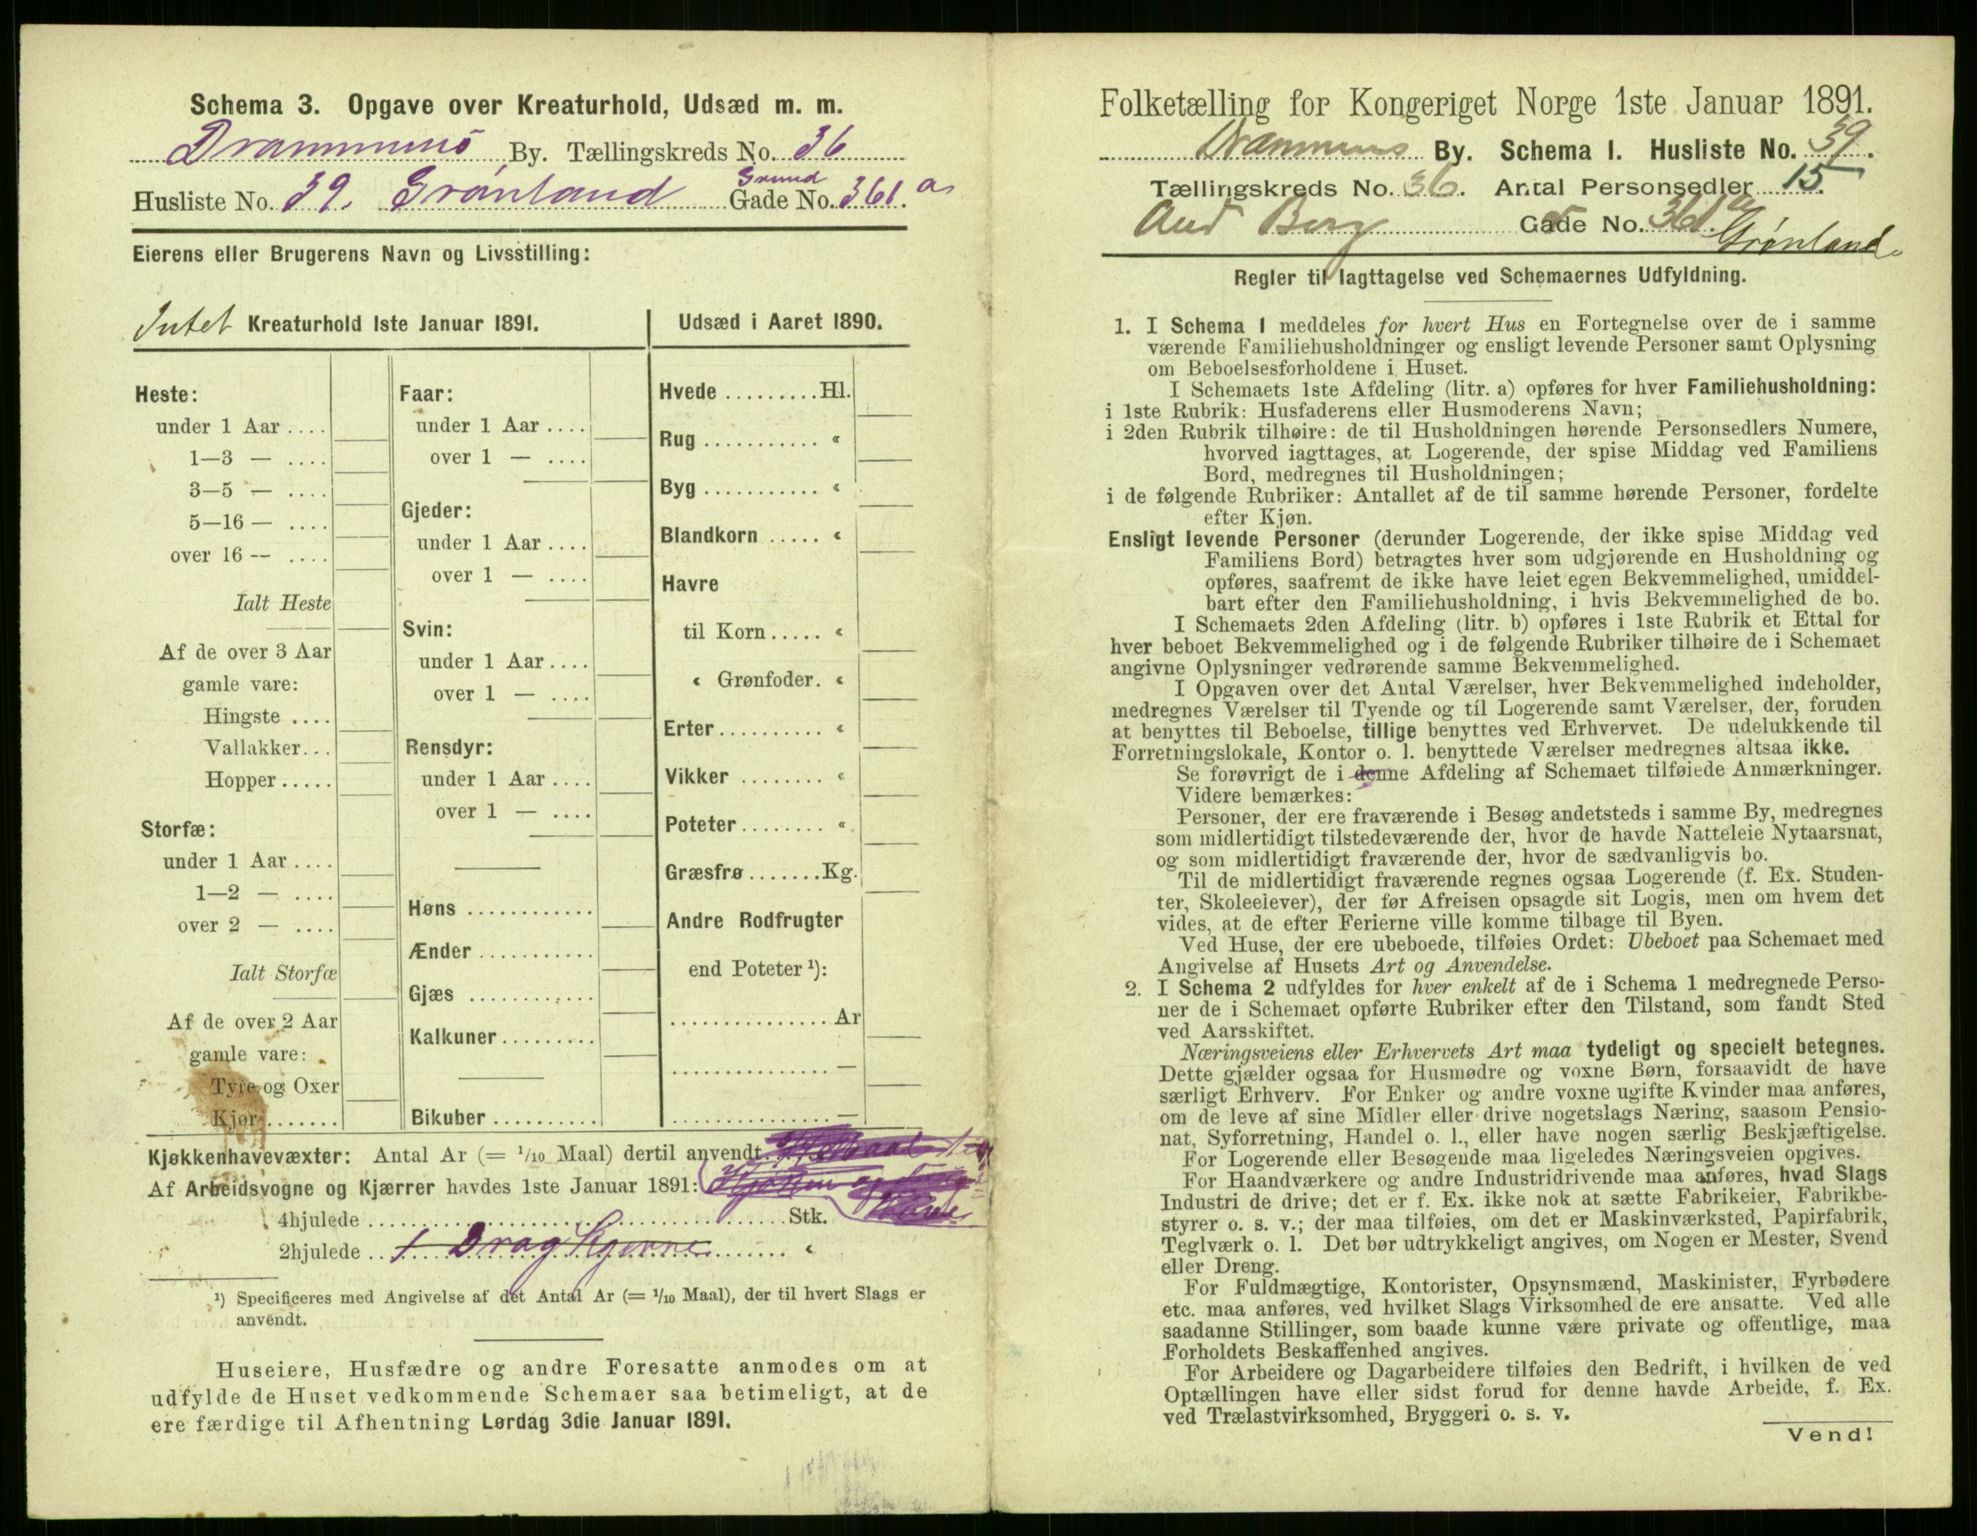 Schema 3. Opgave over Kreaturhold, Udsæd m. m.
Drammens By. Tællingskreds No. 36
Husliste No. 39. Grønland Grund Gade No. 361 a
Eierens eller Brugerens Navn og Livsstilling:
Intet Kreaturhold 1ste Januar 1891.
Heste:
under 1 Aar ....
1—3 — ....
3—5 — ....
5—16 — ....
over 16 — ....
Ialt Heste
Af de over 3 Aar
gamle vare:
Hingste ....
Vallakker...
Hopper .....
Storfæ:
under 1 Aar ....
1—2 — ....
over 2 — ....
Ialt Storfæ
Af de over 2 Aar
gamle vare:
Tyre og Oxer
Kjør.......
Faar:
under 1 Aar ....
over 1 — ....
Gjeder:
under 1 Aar ....
over 1 — ....
Svin:
under 1 Aar ....
over 1 — ....
Rensdyr:
under 1 Aar ....
over 1 — ....
Høns ............
Ænder ...........
Gjæs ............
Kalkuner.........
Bikuber ..........
Udsæd i Aaret 1890.
Hvede .........Hl.
Rug ........... «
Byg ........... «
Blandkorn ..... «
Havre
til Korn ..... «
« Grønfoder. «
Erter.......... «
Vikker ........ «
Poteter........ «
Græsfrø .......Kg.
Andre Rodfrugter
end Poteter ¹):
............... Ar
............... —
............... —
Kjøkkenhavevæxter: Antal Ar (= 1/10 Maal) dertil anvendt
Af Arbeidsvogne og Kjærrer havdes 1ste Januar 1891:
4hjulede ........ Stk.
2hjulede .. 1 Drag Kjerre «
¹) Specificeres med Angivelse af det Antal Ar (= 1/10 Maal), der til hvert Slags er
anvendt.
Huseiere, Husfædre og andre Foresatte anmodes om at
udfylde de Huset vedkommende Schemaer saa betimeligt, at de
ere færdige til Afhentning Lørdag 3die Januar 1891.
Folketælling for Kongeriget Norge 1ste Januar 1891.
Drammens By. Schema 1. Husliste No. 39.
Tællingskreds No. 36. Antal Personsedler 15.
And Berg Gade No. 361 a
Grønland
Regler til Iagttagelse ved Schemaernes Udfyldning.
1. I Schema 1 meddeles for hvert Hus en Fortegnelse over de i samme
værende Familiehusholdninger og ensligt levende Personer samt Oplysning
om Beboelsesforholdene i Huset.
I Schemaets 1ste Afdeling (litr. a) opføres for hver Familiehusholdning:
i 1ste Rubrik: Husfaderens eller Husmoderens Navn;
i 2den Rubrik tilhøire: de til Husholdningen hørende Personsedlers Numere,
hvorved iagttages, at Logerende, der spise Middag ved Familiens
Bord, medregnes til Husholdningen;
i de følgende Rubriker: Antallet af de til samme hørende Personer, fordelte
efter Kjøn.
Ensligt levende Personer (derunder Logerende, der ikke spise Middag ved
Familiens Bord) betragtes hver som udgjørende en Husholdning og
opføres, saafremt de ikke have leiet egen Bekvemmelighed, umiddel-
bart efter den Familiehusholdning, i hvis Bekvemmelighed de bo.
I Schemaets 2den Afdeling (litr. b) opføres i 1ste Rubrik et Ettal for
hver beboet Bekvemmelighed og i de følgende Rubriker tilhøire de i Schemaet
angivne Oplysninger vedrørende samme Bekvemmelighed.
I Opgaven over det Antal Værelser, hver Bekvemmelighed indeholder,
medregnes Værelser til Tyende og til Logerende samt Værelser, der, foruden
at benyttes til Beboelse, tillige benyttes ved Erhvervet. De udelukkende til
Forretningslokale, Kontor o. l. benyttede Værelser medregnes altsaa ikke.
Se forøvrigt de i denne Afdeling af Schemaet tilføiede Anmærkninger.
Videre bemærkes:
Personer, der ere fraværende i Besøg andetsteds i samme By, medregnes
som midlertidigt tilstedeværende der, hvor de havde Natteleie Nytaarsnat,
og som midlertidigt fraværende der, hvor de sædvanligvis bo.
Til de midlertidigt fraværende regnes ogsaa Logerende (f. Ex. Studen-
ter, Skoleelever), der før Afreisen opsagde sit Logis, men om hvem det
vides, at de efter Ferierne ville komme tilbage til Byen.
Ved Huse, der ere ubeboede, tilføies Ordet: Ubeboet paa Schemaet med
Angivelse af Husets Art og Anvendelse.
2. I Schema 2 udfyldes for hver enkelt af de i Schema 1 medregnede Perso-
ner de i Schemaet opførte Rubriker efter den Tilstand, som fandt Sted
ved Aarsskiftet.
Næringsveiens eller Erhvervets Art maa tydeligt og specielt betegnes.
Dette gjælder ogsaa for Husmødre og voxne Børn, forsaavidt de have
særligt Erhverv. For Enker og andre voxne ugifte Kvinder maa anføres,
om de leve af sine Midler eller drive nogetslags Næring, saasom Pensio-
nat, Syforretning, Handel o. l., eller have nogen særlig Beskjæftigelse.
For Logerende eller Besøgende maa ligeledes Næringsveien opgives.
For Haandværkere og andre Industridrivende maa anføres, hvad Slags
Industri de drive; det er f. Ex. ikke nok at sætte Fabrikeier, Fabrikbe-
styrer o. s. v.; der maa tilføies, om det er Maskinværksted, Papirfabrik,
Teglværk o. l. Det bør udtrykkeligt angives, om Nogen er Mester, Svend
eller Dreng.
For Fuldmægtige, Kontorister, Opsynsmænd, Maskinister, Fyrbødere
etc. maa anføres, ved hvilket Slags Virksomhed de ere ansatte. Ved alle
saadanne Stillinger, som baade kunne være private og offentlige, maa
Forholdets Beskaffenhed angives.
For Arbeidere og Dagarbeidere tilføies den Bedrift, i hvilken de ved
Optællingen have eller sidst forud for denne havde Arbeide, f. Ex.
ved Trælastvirksomhed, Bryggeri o. s. v.
Vend!